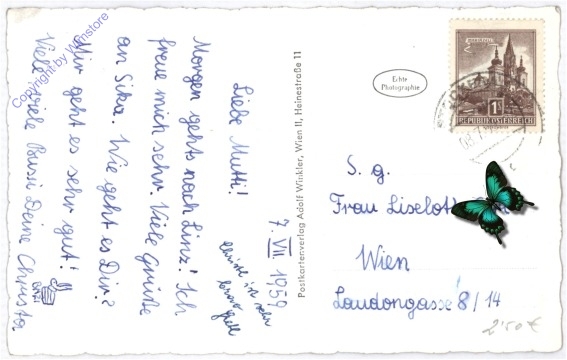 Liebe Mutti!
Morgen gehts nach Linz! Ich
freue mich sehr. Viele Grüße
an Sika. Wie geht es Dir?
Mir geht es sehr gut!
Viele viele Bussi Deine Christa
7. VII. 1959
Christa ist sehr
Postkartenverlag Adolf Winkler, Wien II, Heinestraße 11
Echte
Photographie
MARIAZELL
1S
REPUBLIK ÖSTERREICH
S. g.
Frau
Wien
Laudongasse 8/14
2'50€
Copyright by Wimstore